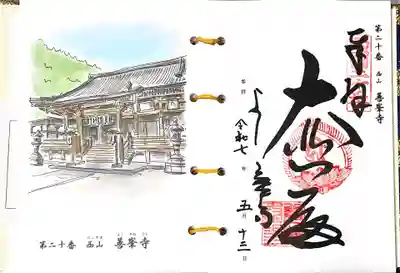 第二十番 西山 善峯寺
奉拝
大悲殿
よし峯寺
令和七年五月十三日
第二十番 西山 善峯寺